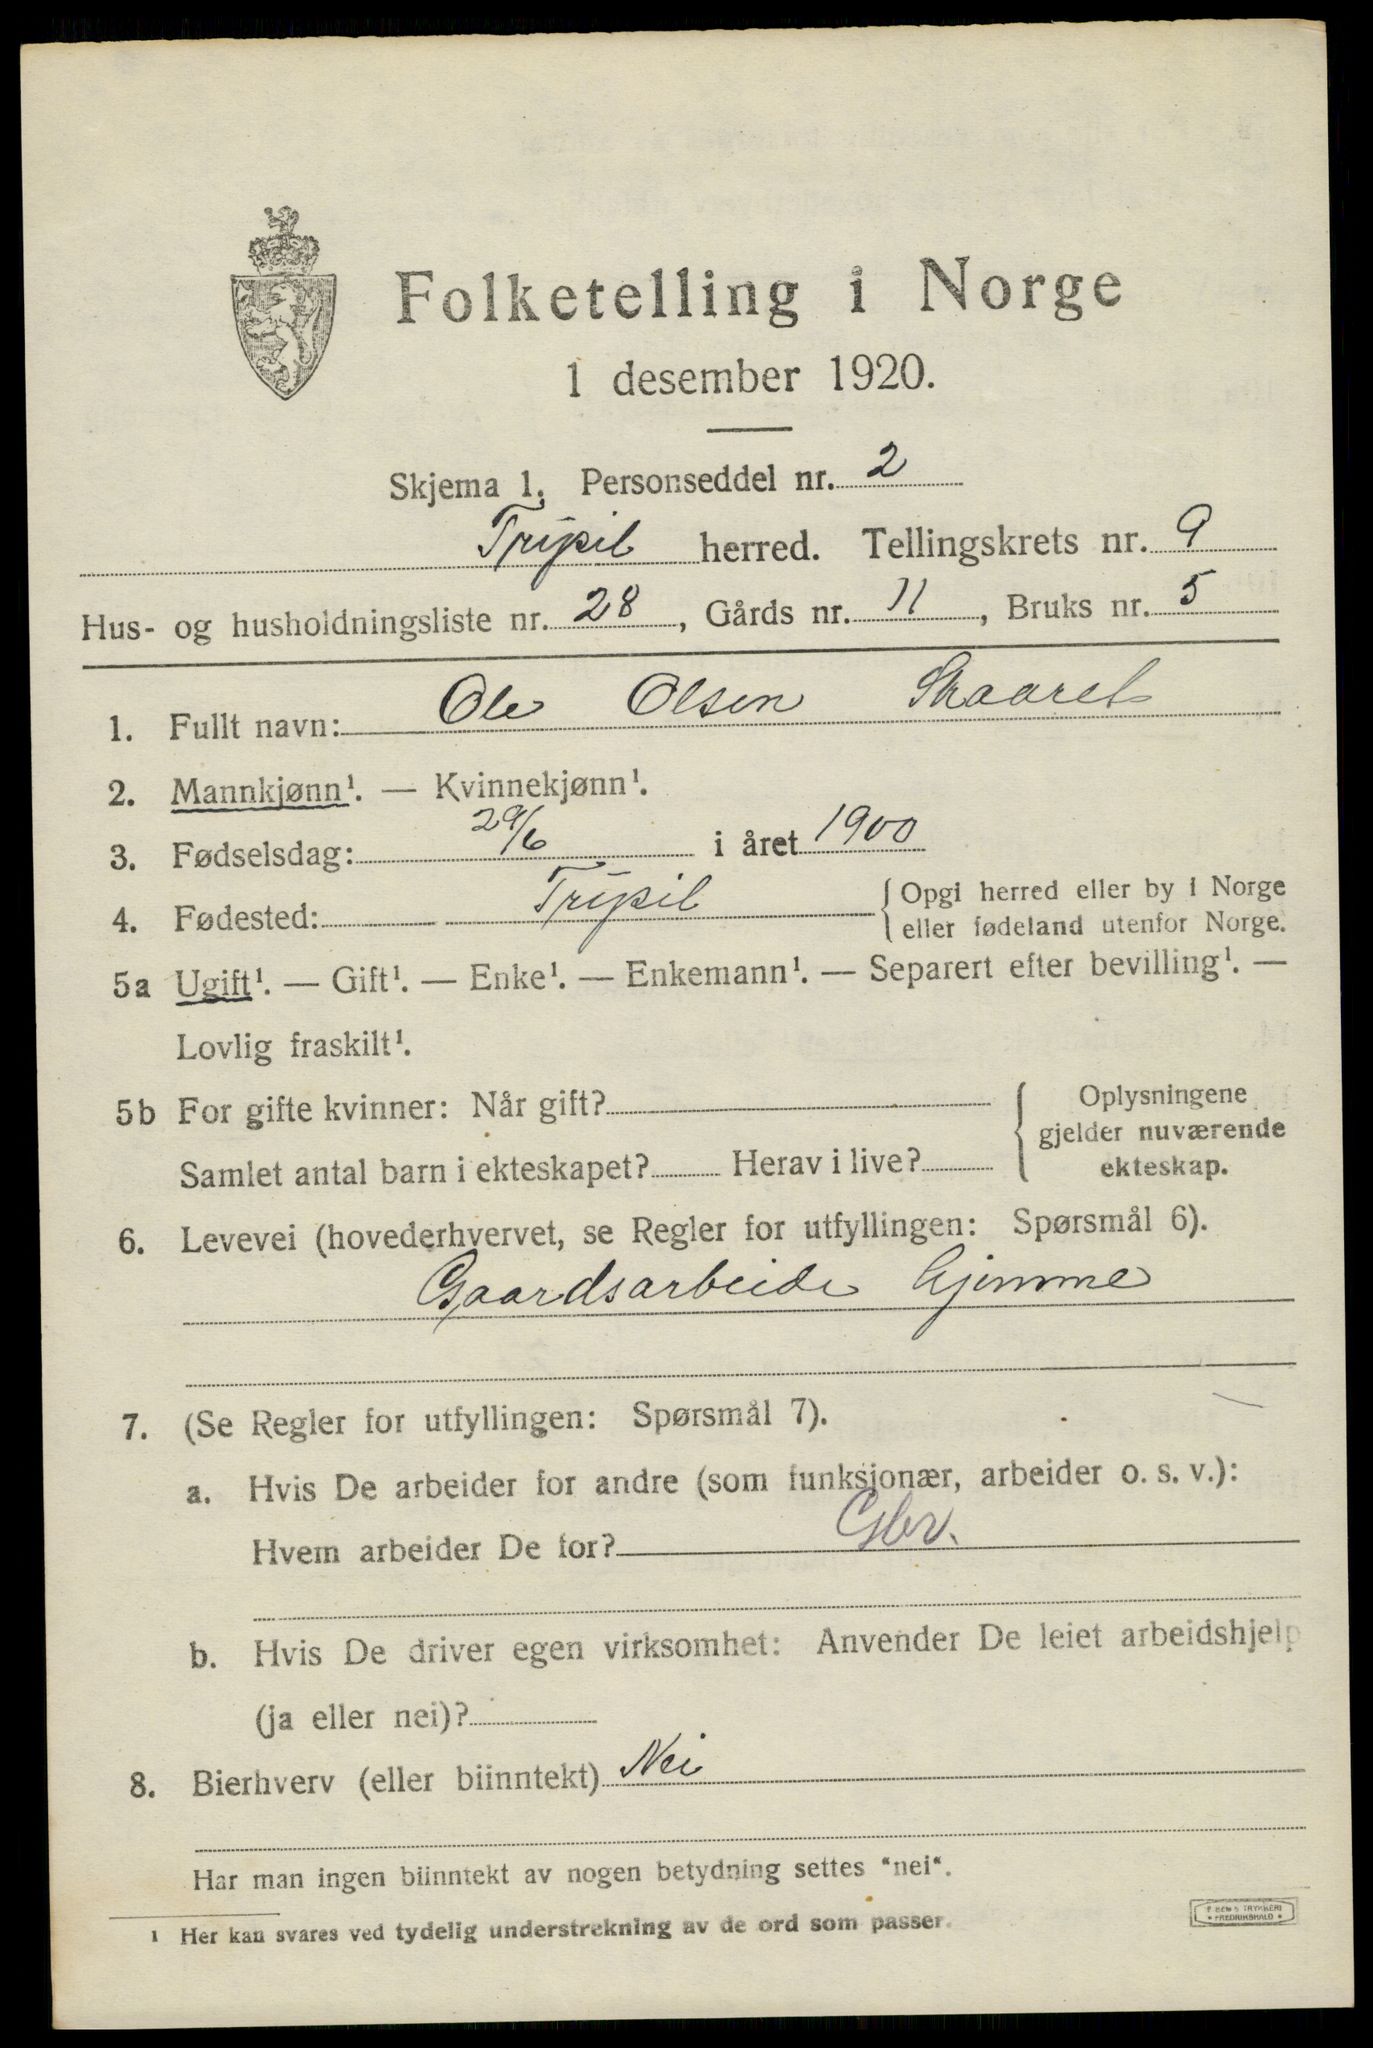 Folketelling i Norge
1 desember 1920.
Skjema 1. Personseddel nr. 2
Trysil herred. Tellingskrets nr. 9
Hus- og husholdningsliste nr. 28, Gårds nr. 11, Bruks nr. 5
1. Fullt navn: Ole Olsen Skaaret
2. Mannkjønn¹. — Kvinnekjønn¹.
3. Fødselsdag: 29/6 i året 1900
4. Fødested: Trysil { Opgi herred eller by i Norge
eller fødeland utenfor Norge.
5a Ugift¹. — Gift¹. — Enke¹. — Enkemann¹. — Separert efter bevilling¹. —
Lovlig fraskilt¹.
5b For gifte kvinner: Når gift? { Oplysningene
gjelder nuværende
Samlet antal barn i ekteskapet? Herav i live? ekteskap.
6. Levevei (hovederhvervet, se Regler for utfyllingen: Spørsmål 6).
Gaardsarbeide hjemme
7. (Se Regler for utfyllingen: Spørsmål 7).
a. Hvis De arbeider for andre (som funksjonær, arbeider o. s. v.):
Hvem arbeider De for? Gbr.
b. Hvis De driver egen virksomhet: Anvender De leiet arbeidshjelp
(ja eller nei)?
8. Bierhverv (eller biinntekt) Nei
Har man ingen biinntekt av nogen betydning settes "nei".
¹ Her kan svares ved tydelig understrekning av de ord som passer.
TRYKKERI
FREDRIKSHALD